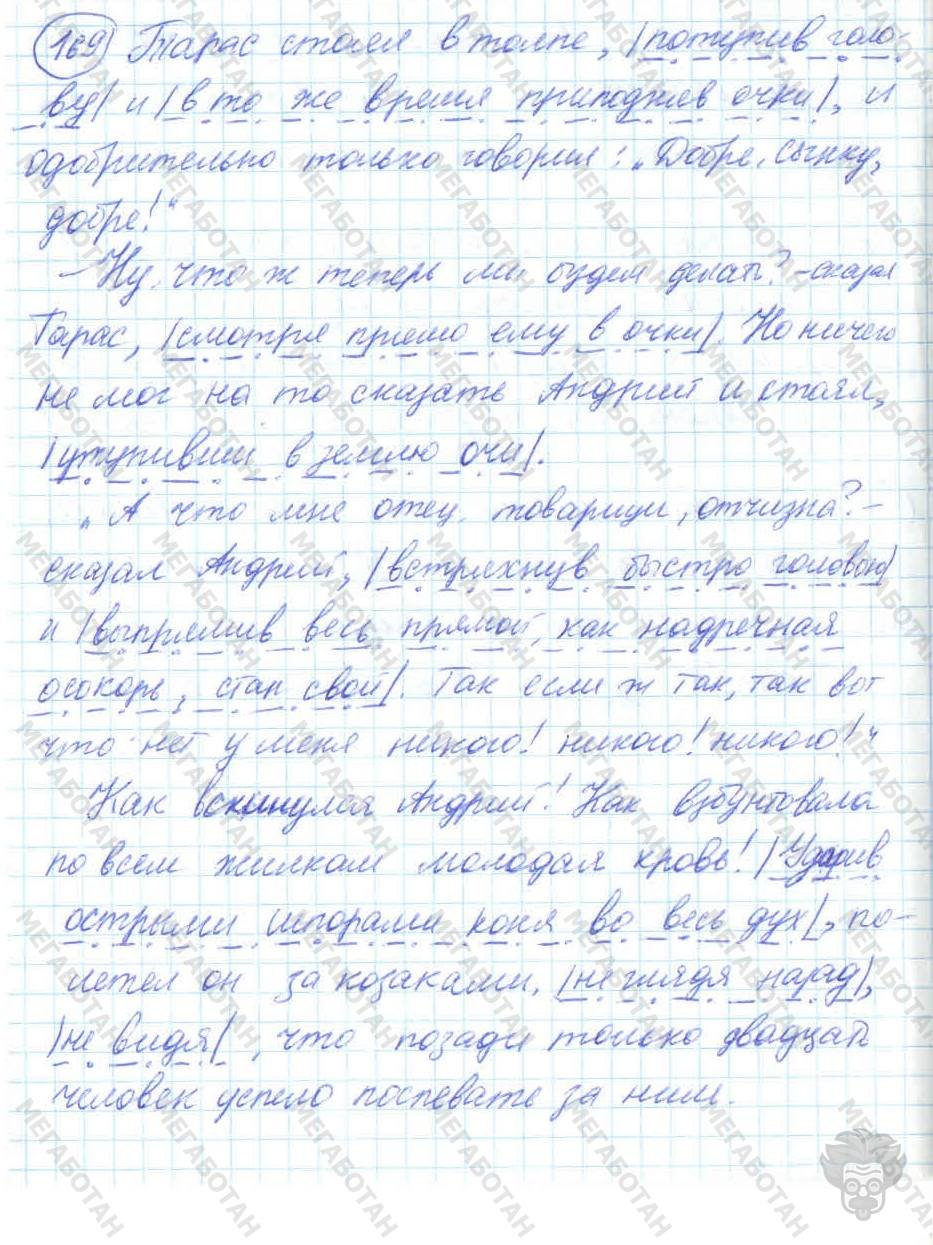 169 Тарас стоял в толпе, |потупив голо-
ву| и |в то же время приподняв очки|, и
одобрительно только говорил: „Добре, сынку,
добре!“
– Ну, что ж теперь мы будем делать? – сказал
Тарас, |смотря прямо ему в очки|. Но ничего
не мог на то сказать Андрий и стоял,
|утупивши в землю очи|.
„А что мне отец, товарищи, отчизна? –
сказал Андрий, |встряхнув быстро головою|
и |выпрямив весь прямой, как надречная
осокорь, стан свой|. Так если ж так, так вот
что: нет у меня никого! никого! никого!“
Как вскинулся Андрий! Как взбунтовала
по всем жилкам молодая кровь! |Ударив
острыми шпорами коня во весь дух|, по-
летел он за козаками, |не глядя назад|,
|не видя|, что позади только двадцать
человек успело поспевать за ним.
МЕГАБОТАН